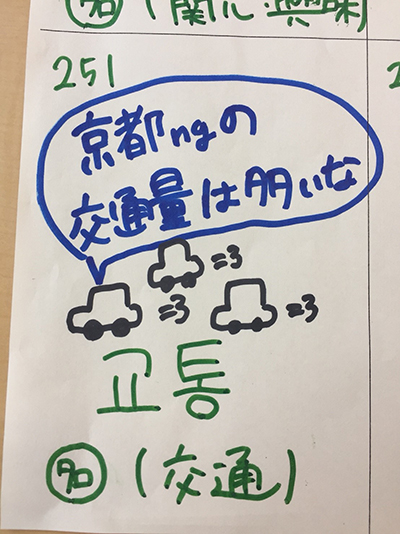 名 (関心・興味
251
京都ngの
交通量は多いな
=3
=3 =3
교통
名 (交通)